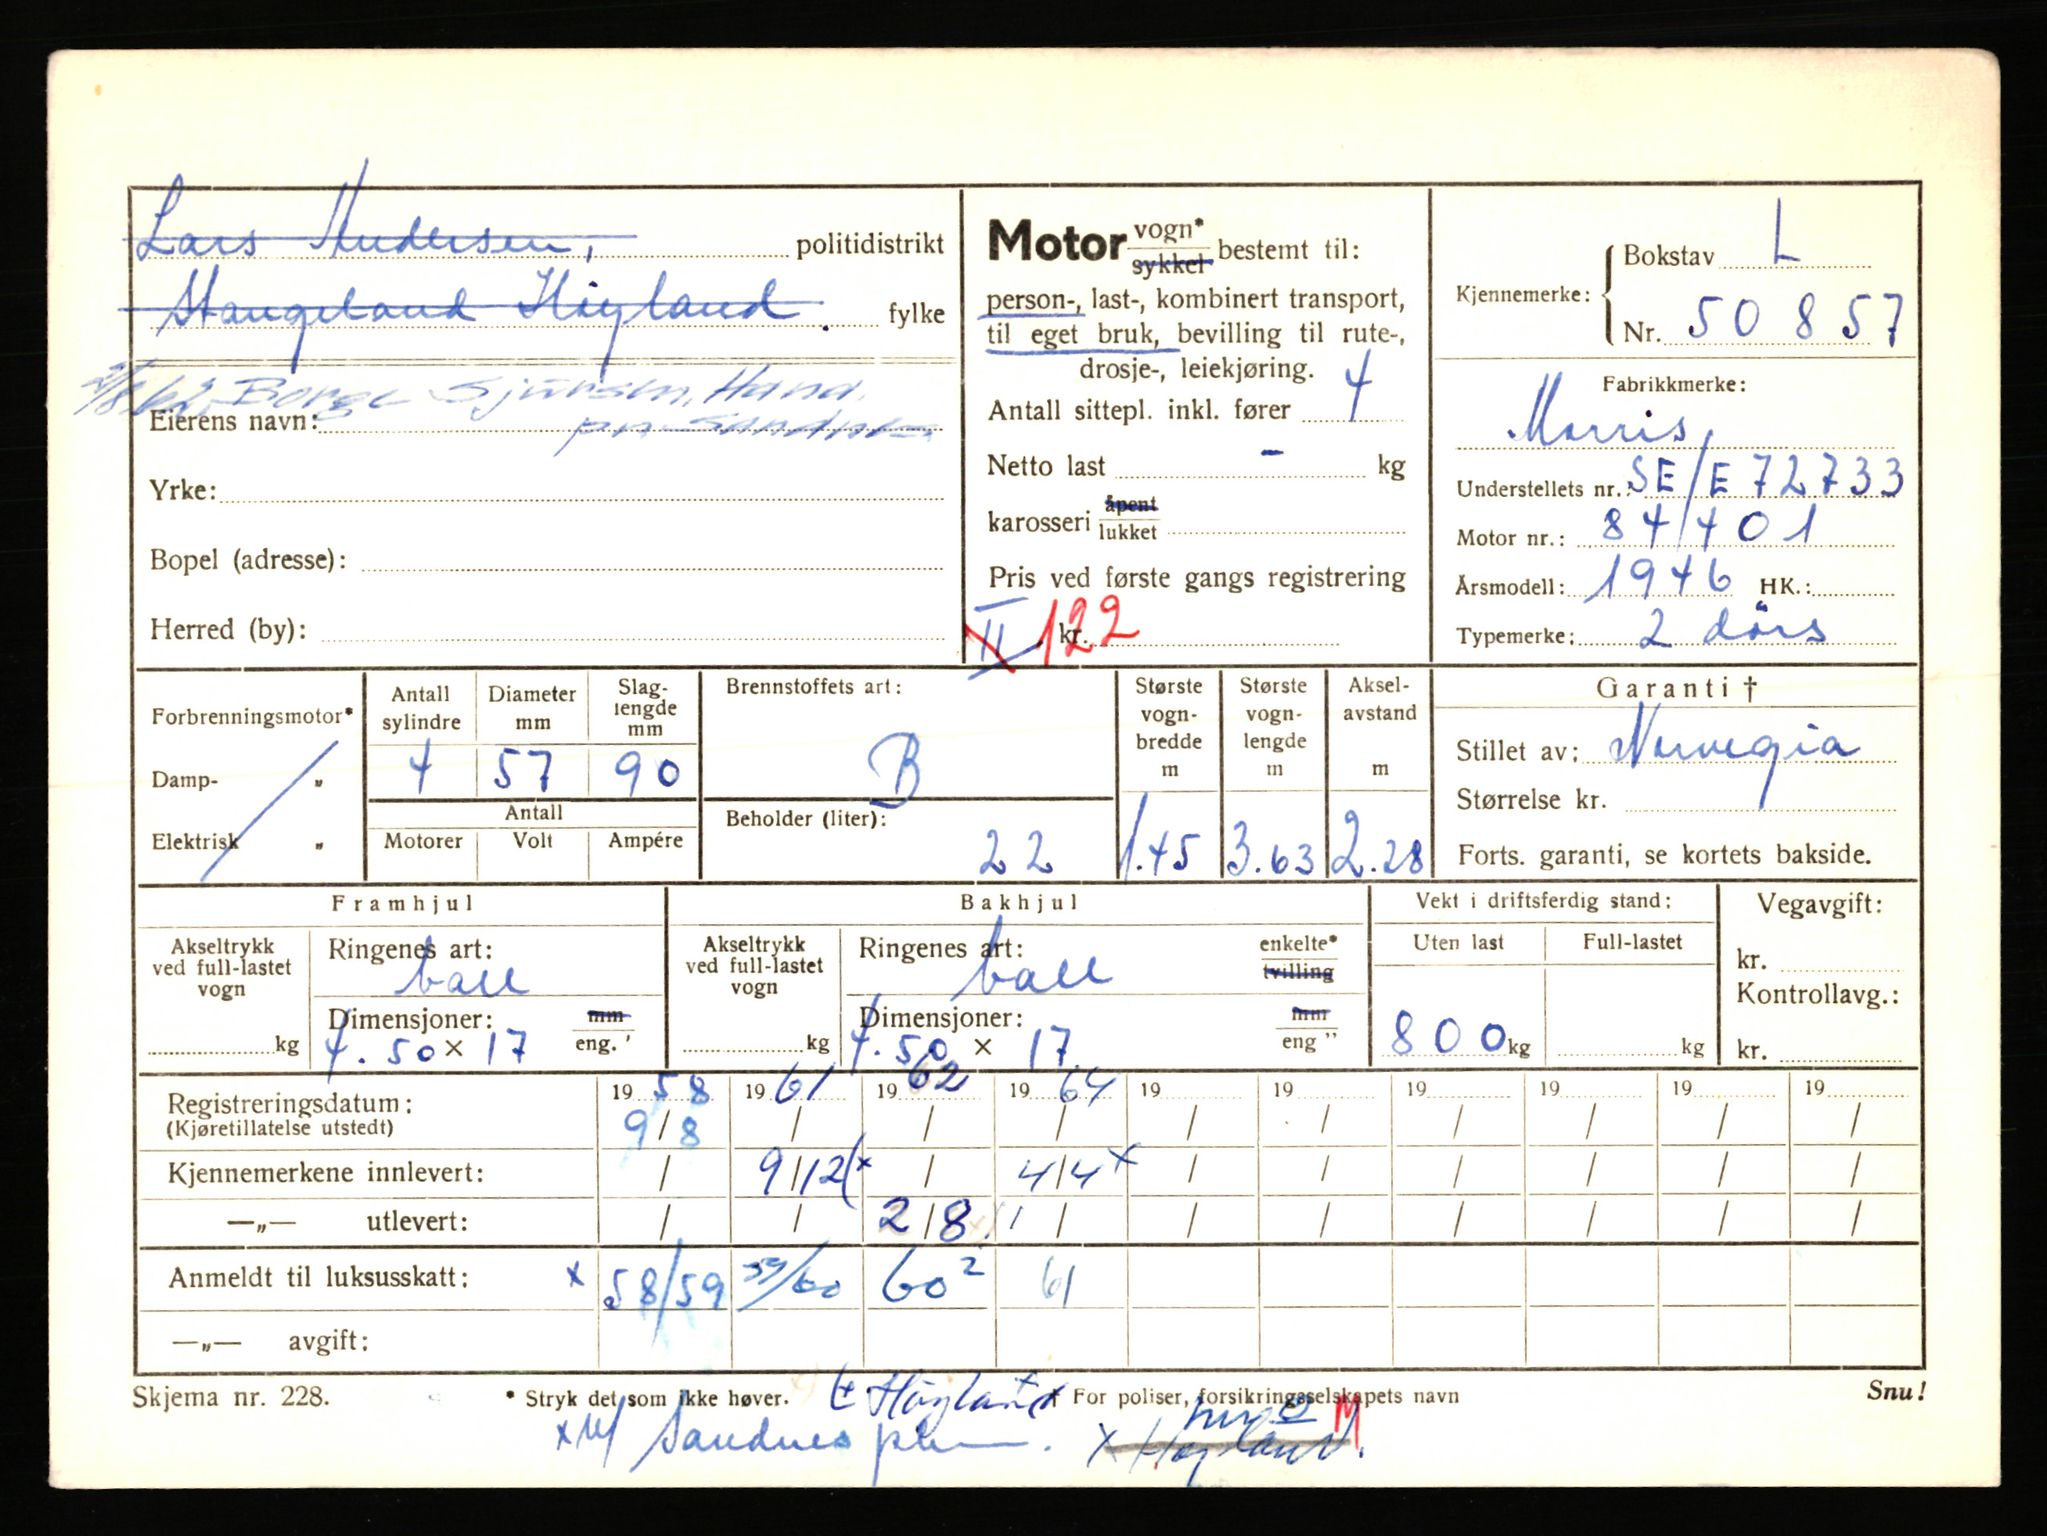 Lars Andersen, politidistrikt
Stangeland Høyland. fylke
Børge Sjursen, Hana,
Eierens navn: Sandnes
Yrke:
Bopel (adresse):
Herred (by):
Motor vogn* sykkel bestemt til:
person-, last-, kombinert transport,
til eget bruk, bevilling til rute-,
drosje-, leiekjøring.
Antall sittepl. inkl. fører 4
Netto last - kg
karosseri åpent lukket
Pris ved første gangs registrering
II 122 kr.
Kjennemerke: Bokstav L
Nr. 50857
Fabrikkmerke:
Morris,
Understellets nr.: SE/E72733
Motor nr.: 84401
Årsmodell: 1946 HK.:
Typemerke: 2 dörs
Forbrenningsmotor*
Damp- „
Elektrisk „
Antall sylindre Diameter mm Slag-lengde mm
4 57 90
Antall
Motorer Volt Ampére
Brennstoffets art:
B
Beholder (liter):
22
Største vogn-bredde m Største vogn-lengde m Aksel-avstand m
1.45 3.63 2.28
Garanti †
Stillet av: Norvegia
Størrelse kr.
Forts. garanti, se kortets bakside.
Framhjul
Akseltrykk ved full-lastet vogn
kg
Ringenes art:
ball
Dimensjoner: mm
4.50 × 17 eng. '
Bakhjul
Akseltrykk ved full-lastet vogn
kg
Ringenes art: enkelte*
ball tvilling
Dimensjoner: mm
4.50 × 17 eng "
Vekt i driftsferdig stand:
Uten last Full-lastet
800 kg kg
Vegavgift:
kr.
Kontrollavg.:
kr.
19 58 19 61 19 62 19 64 19 19 19 19 19 19
Registreringsdatum: 9/8 / / / / / / / / /
(Kjøretillatelse utstedt)
Kjennemerkene innlevert: / 9/12(x / 4/4 x / / / / / /
—„— utlevert: / / 2/8 / / / / / / /
Anmeldt til luksusskatt: x 58/59 59/60 60² 61
—„— avgift:
Skjema nr. 228. * Stryk det som ikke høver. Høyland † For poliser, forsikringsselskapets navn Snu!
Sandnes M
x Høyland.